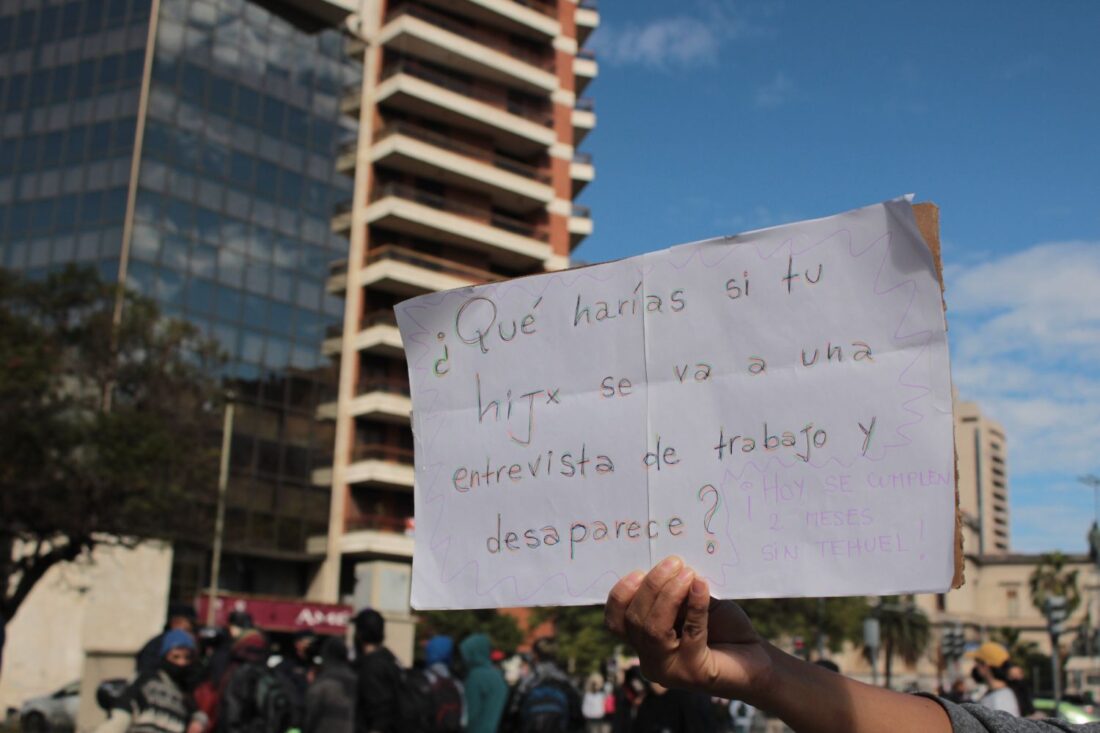 ¿Qué harías si tu
hijx se va a una
entrevista de trabajo y
desaparece?
¡HOY SE CUMPLEN
2 MESES
SIN TEHUEL!
AME